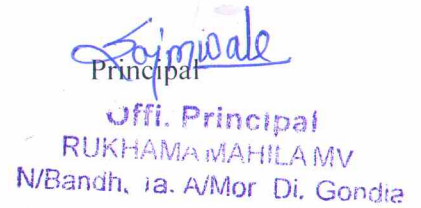 Principal
Offi. Principal
RUKHAMA MAHILA MV
N/Bandh, Ta. A/Mor Di. Gondia